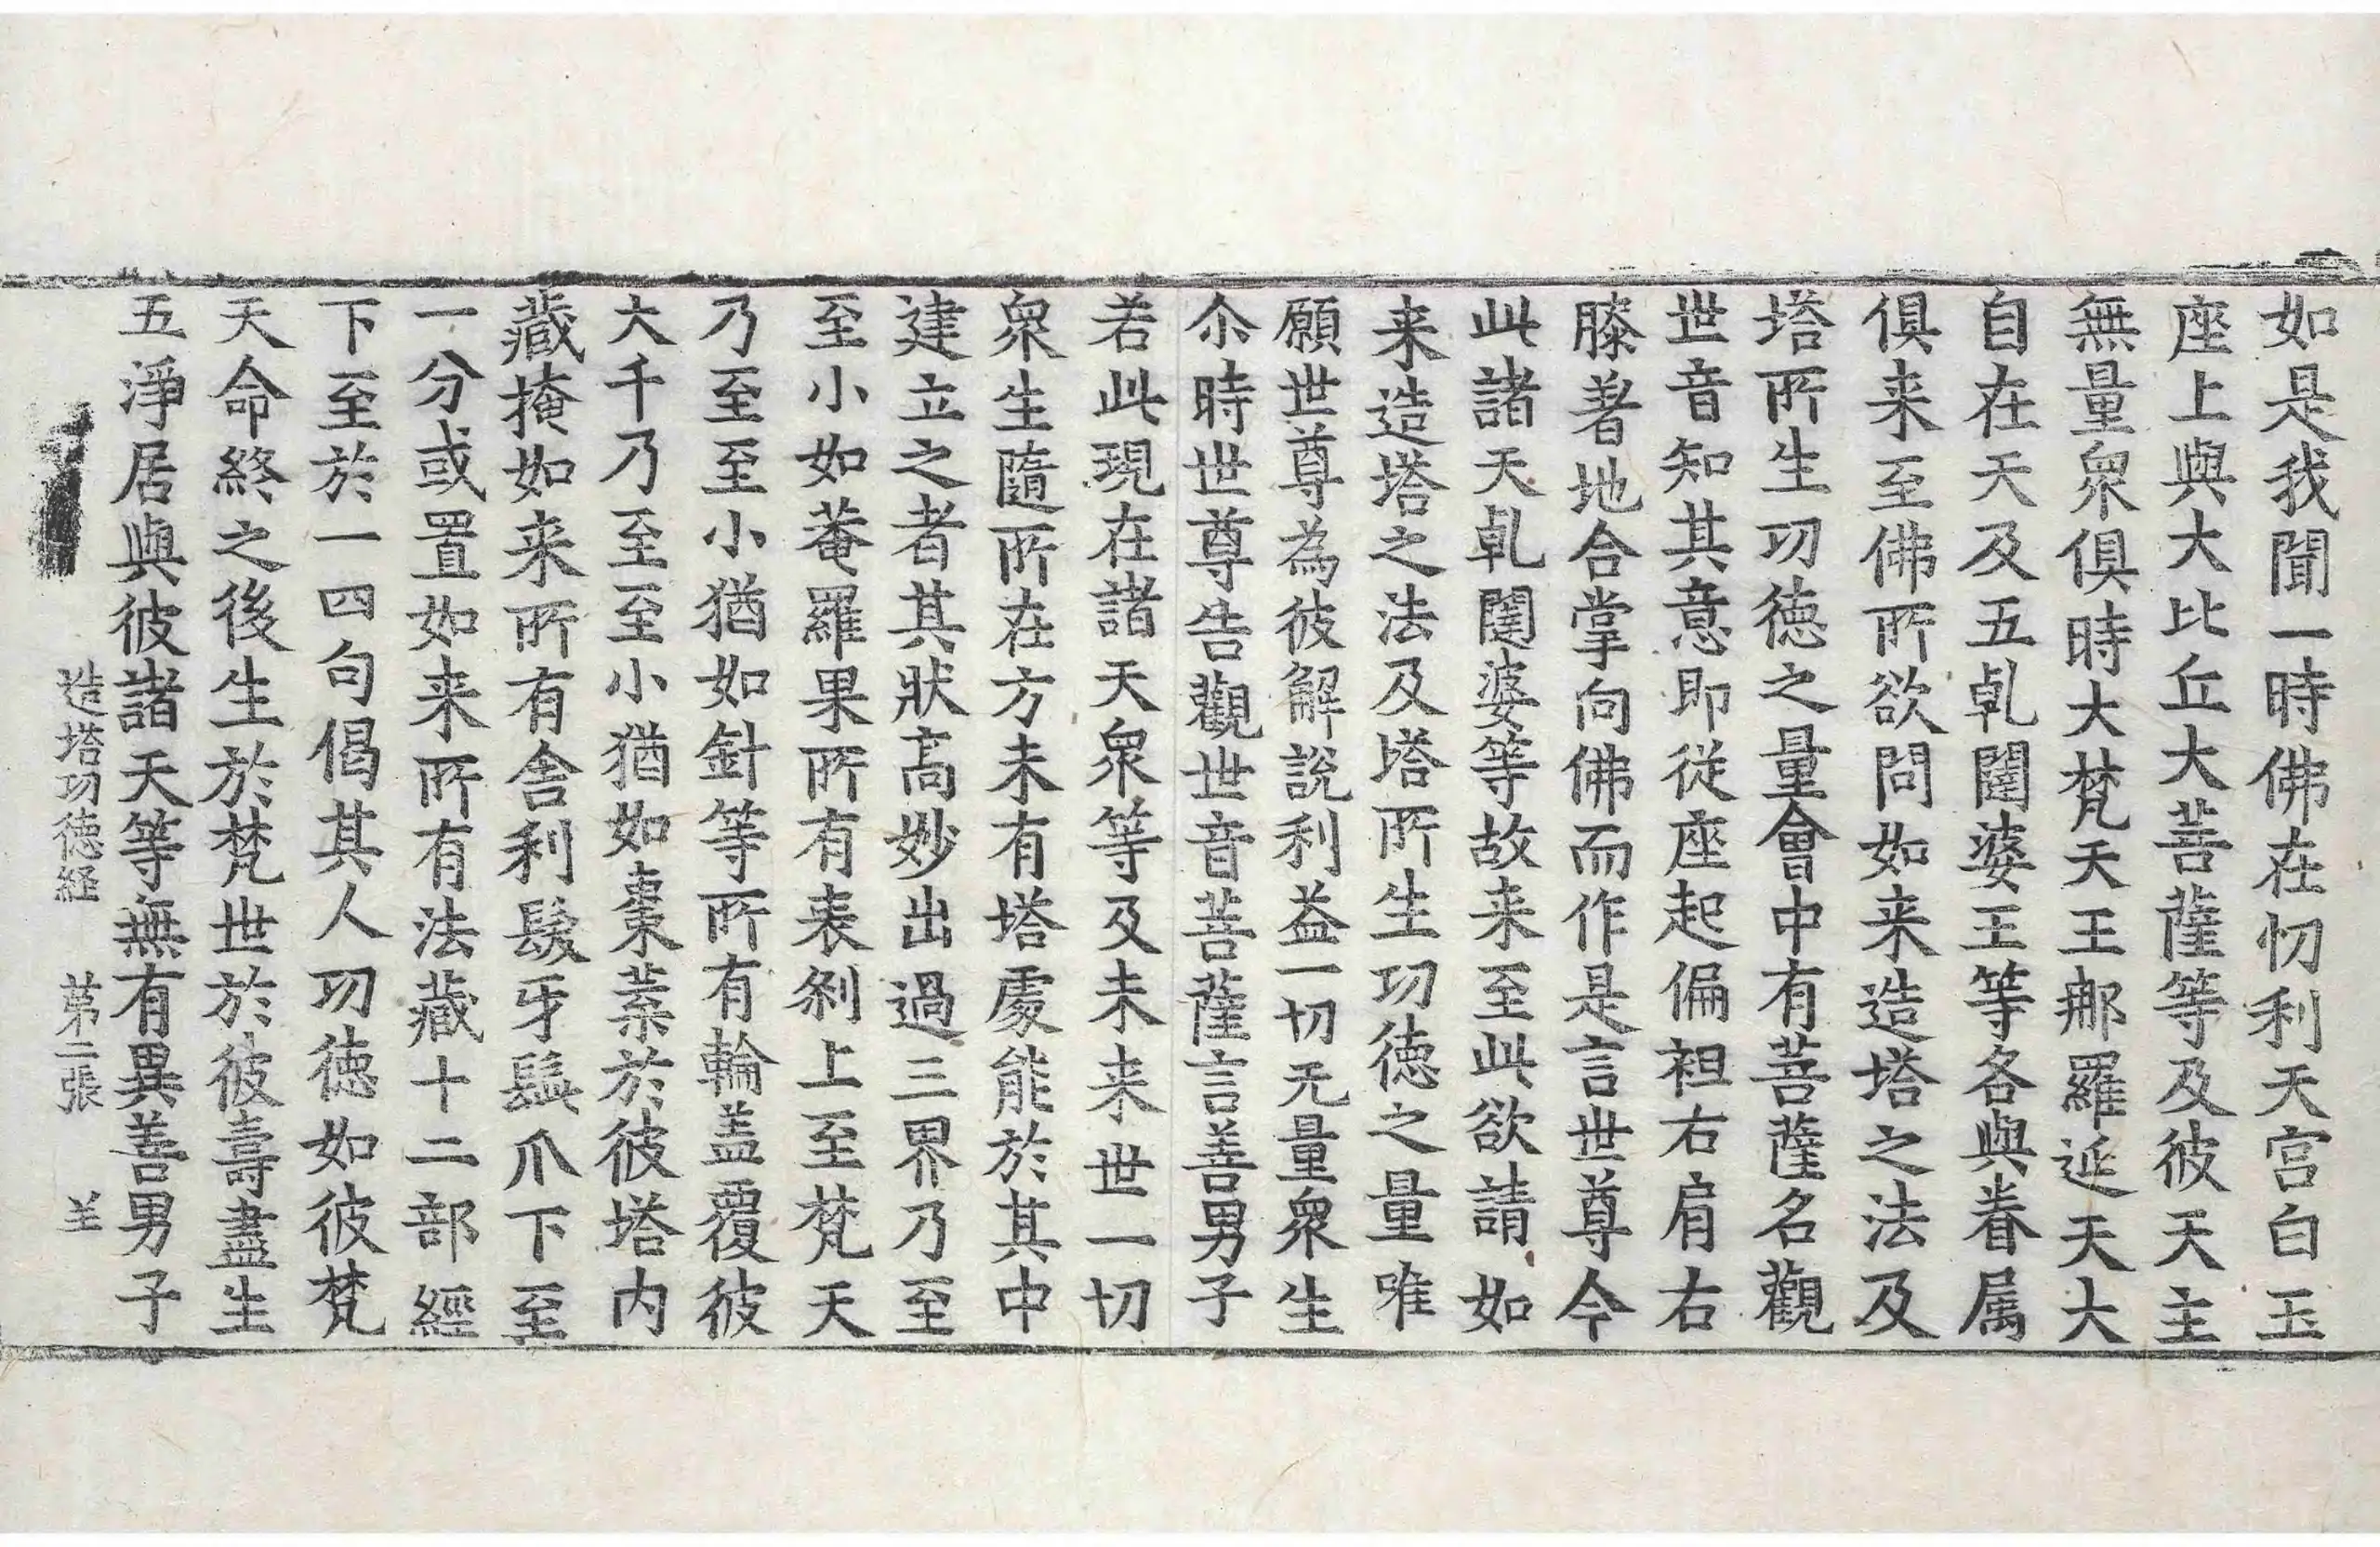 如是我聞一時佛在忉利天宮白玉
座上與大比丘大菩薩等及彼天主
無量衆俱時大梵天王那羅延天大
自在天及五乹闥婆王等各與眷属
俱来至佛所欲問如来造塔之法及
塔所生功徳之量會中有菩薩名觀
世音知其意即從座起偏袒右肩右
膝著地合掌向佛而作是言世尊今
此諸天乹闥婆等故来至此欲請如
来造塔之法及塔所生功徳之量唯
願世尊為彼解說利益一切无量衆生
尒時世尊告觀世音菩薩言善男子
若此現在諸天衆等及未来世一切
衆生隨所在方未有塔處能於其中
建立之者其狀高妙出過三界乃至
至小如菴羅果所有表刹上至梵天
乃至至小猶如針等所有輪盖覆彼
大千乃至至小猶如棗葉於彼塔内
藏掩如来所有舍利髮牙髭爪下至
一分或置如来所有法藏十二部經
下至於一四句偈其人功徳如彼梵
天命終之後生於梵世於彼壽盡生
五淨居與彼諸天等無有異善男子
造塔功徳経　第二張　羊